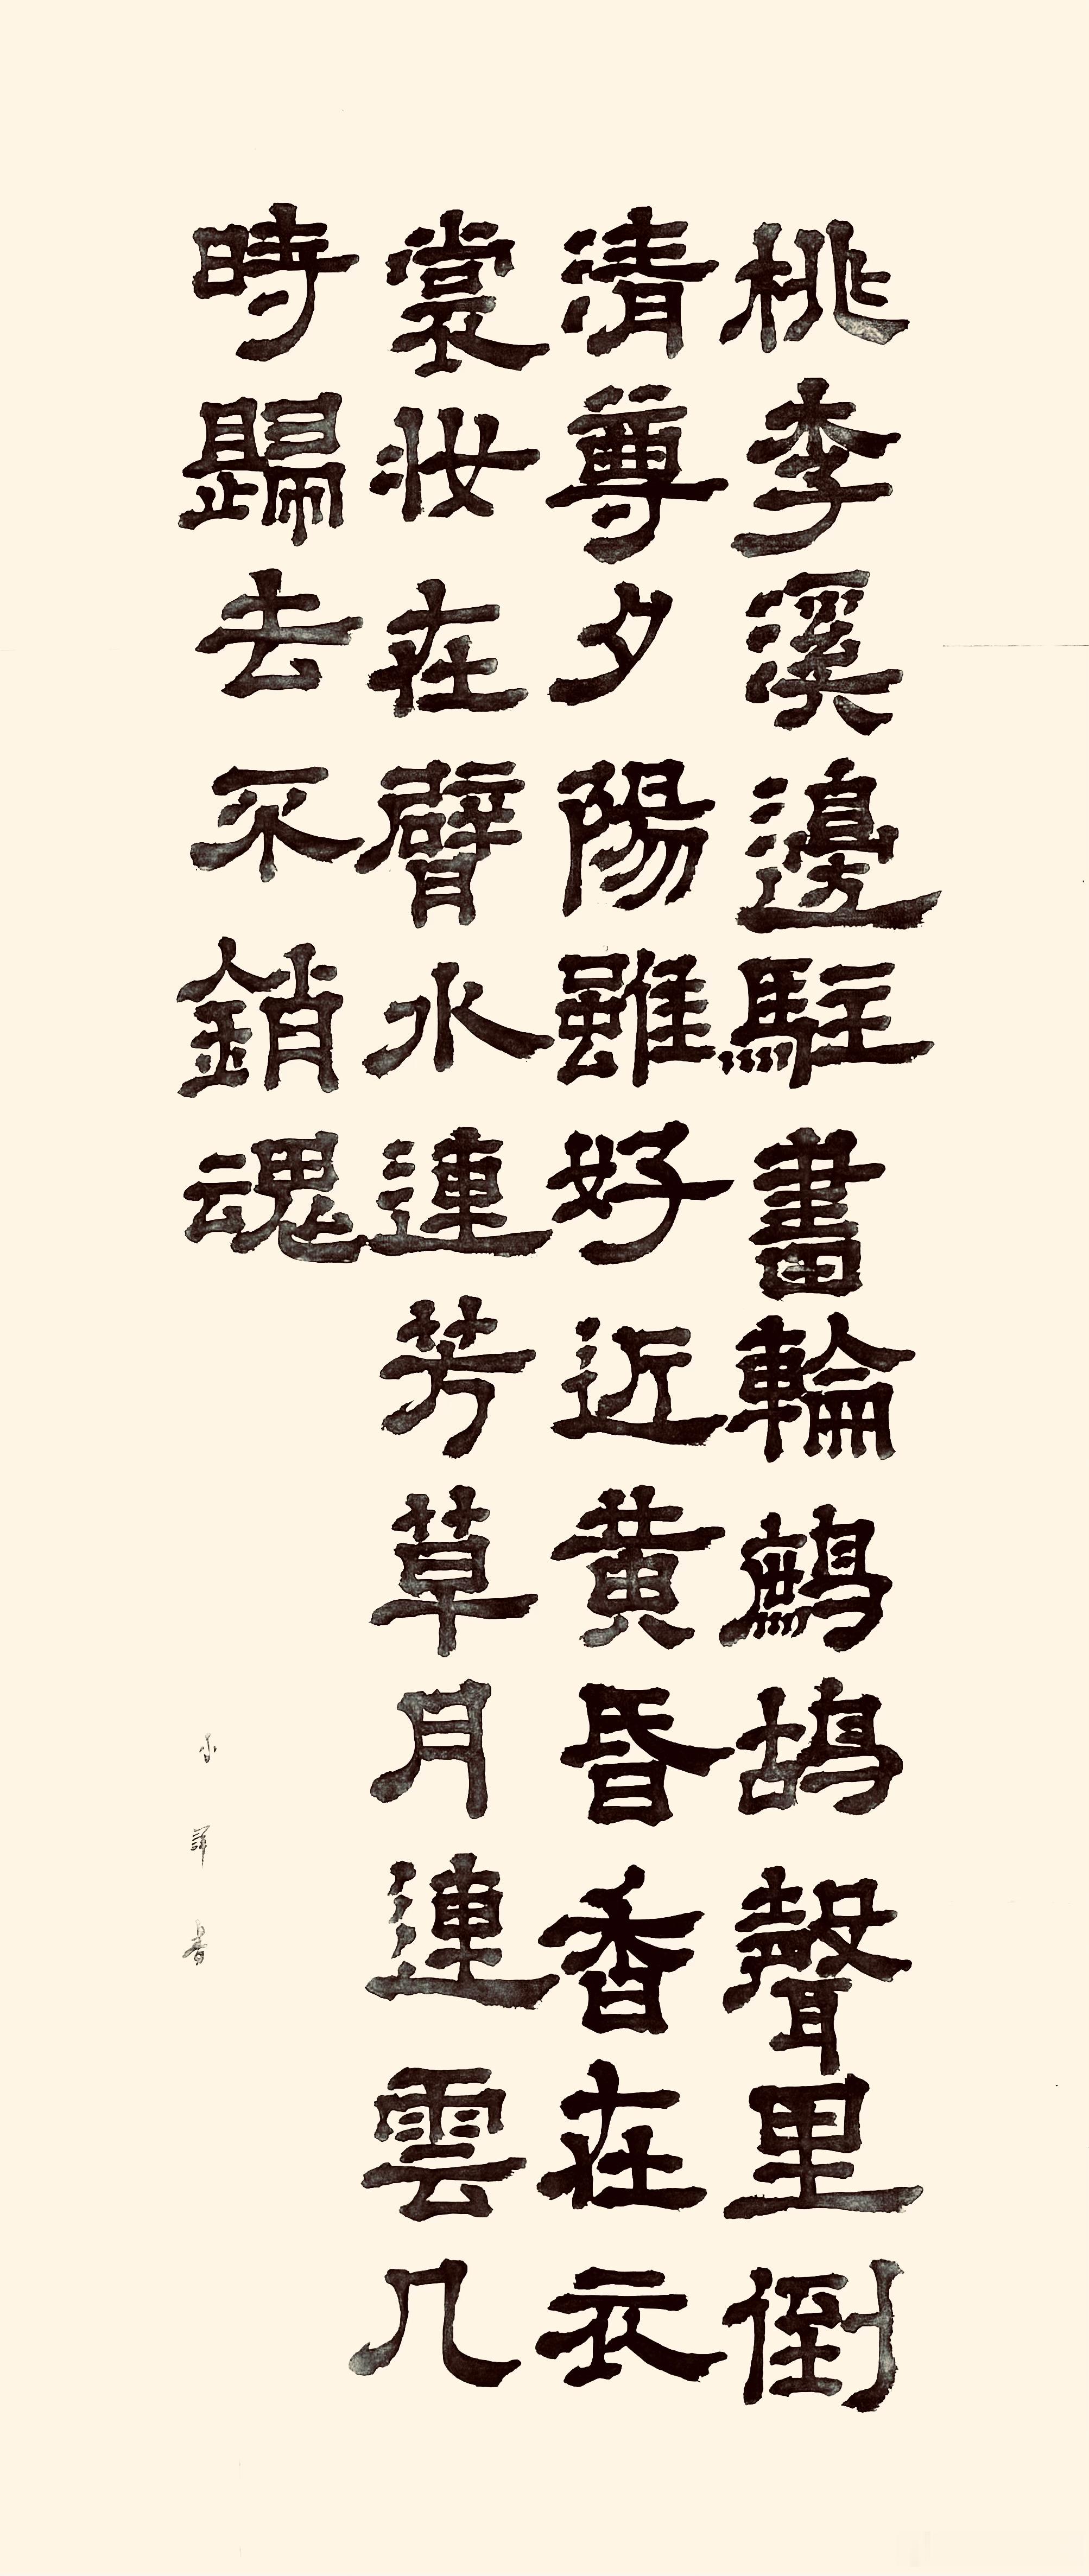 桃李溪邊駐畫輪鷓鴣聲里倒
清尊夕陽雖好近黄昏香在衣
裳妝在臂水連芳草月連雲几
時歸去不銷魂